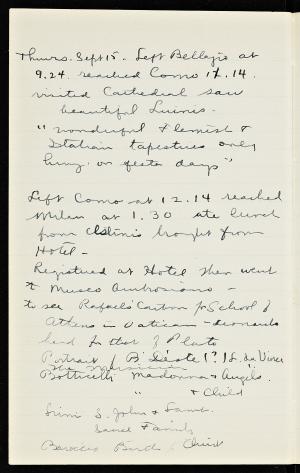 Thurs. Sept 15. Left Bellagio at
9.24. reached Como 11.14.
visited Cathedral saw
beautiful Luinis -
"wonderful Flemish &
Italian tapestries only
hung on festa days"
Left Como at 12.14 reached
Milan at 1.30 ate lunch
from brought from
Hotel -
Registered at Hotel then went
to Museo Ambrosiano -
to see Rafael's Carton for School of
Athens in Vatican - Leonardo
head for that of Plato
Portrait of B. d'Este (?) L. da Vinci
The Musician
Botticelli Madonna & Angels.
" " & Child
Luini S. John & Lamb.
Sacred Family
Barocci Birth / Christ